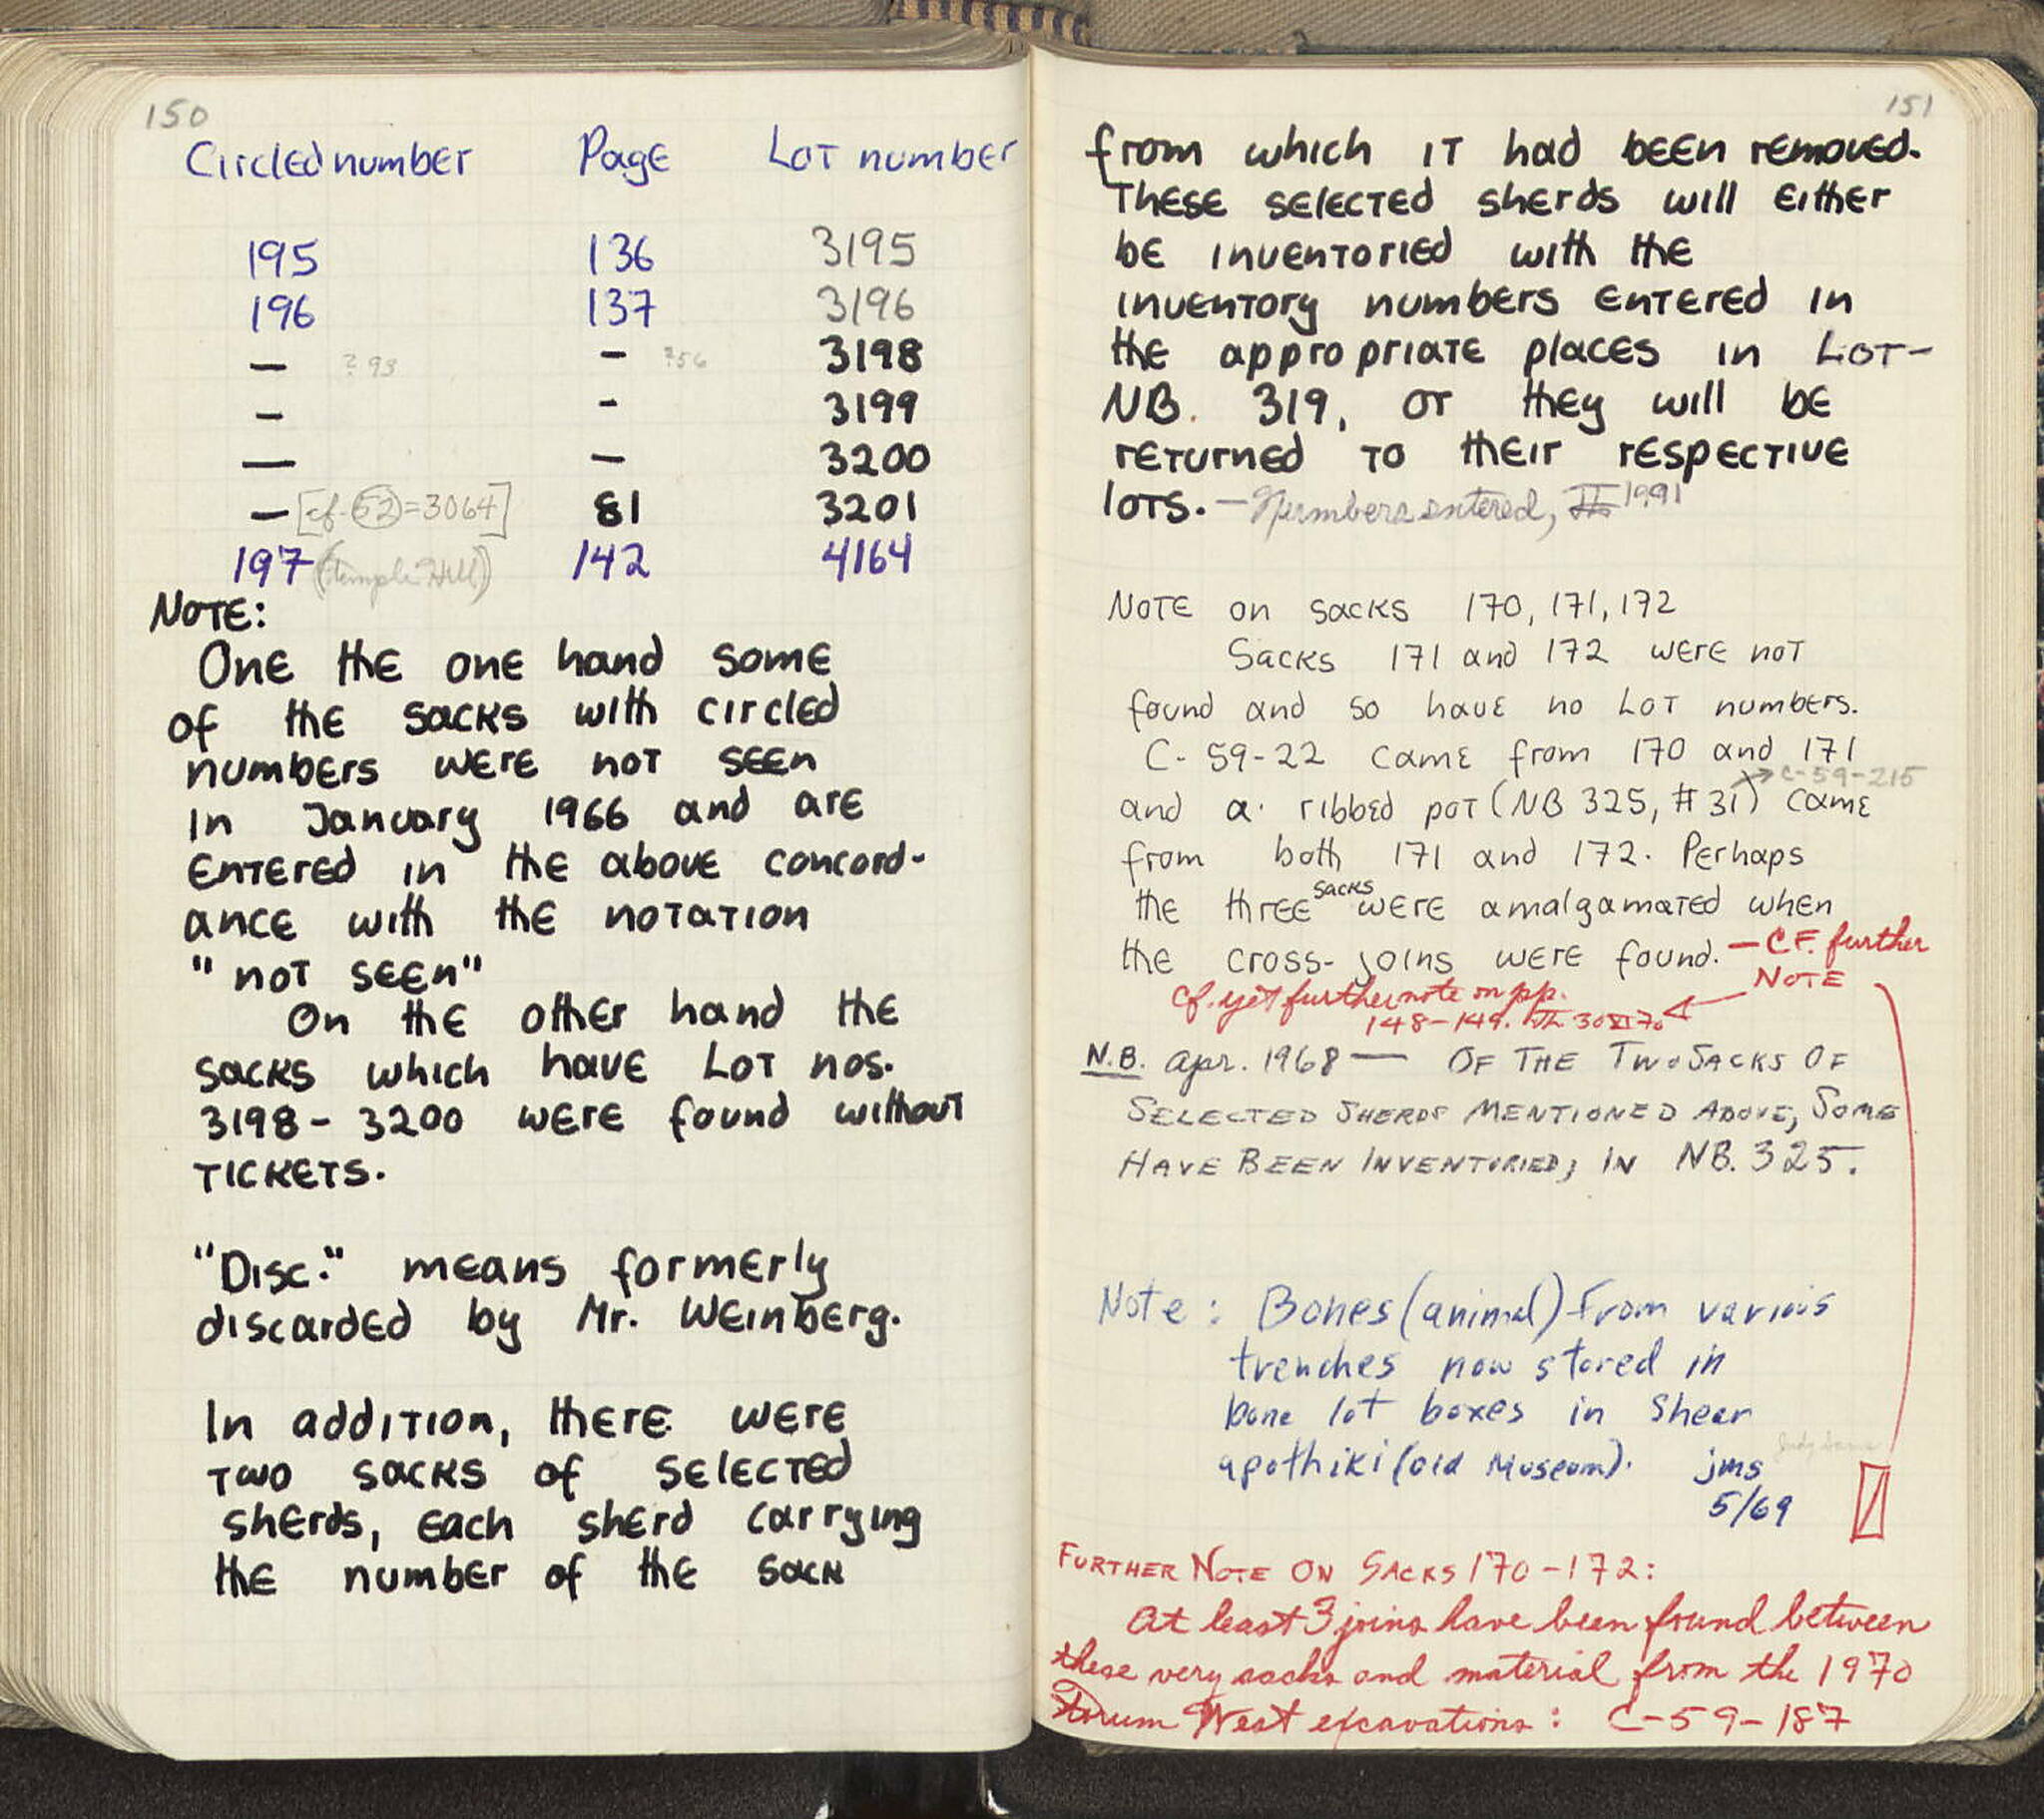 150
Circled number Page Lot number
195 136 3195
196 137 3196
— ? 93 – ?56 3198
– - 3199
— – 3200
— [cf. 52 = 3064] 81 3201
197 (Temple Hill) 142 4164
NOTE:
One the one hand some
of the sacks with circled
numbers were not seen
in January 1966 and are
entered in the above concord-
ance with the notation
"not seen"
On the other hand the
sacks which have Lot nos.
3198 - 3200 were found without
tickets.
"Disc." means formerly
discarded by Mr. Weinberg.
In addition, there were
two sacks of selected
sherds, each sherd carrying
the number of the sack
151
from which it had been removed.
These selected sherds will either
be inventoried with the
inventory numbers entered in
the appropriate places in Lot-
NB. 319, or they will be
returned to their respective
lots. — Numbers entered, 1991
NOTE on sacks 170, 171, 172
Sacks 171 and 172 were not
found and so have no Lot numbers.
C-59-22 came from 170 and 171
→ C-59-215
and a ribbed pot (NB 325, #31) came
from both 171 and 172. Perhaps
the three sacks were amalgamated when
the cross-joins were found. — CF. further
NOTE
cf. yet further note on pp.
148-149. 30 XI 70
N.B. Apr. 1968 — OF THE TWO SACKS OF
SELECTED SHERDS MENTIONED ABOVE, SOME
HAVE BEEN INVENTORIED, IN NB. 325.
Note: Bones (animal) from various
trenches now stored in
bone lot boxes in Shear
apothiki (old Museum). jms
5/69
FURTHER NOTE ON SACKS 170-172:
At least 3 joins have been found between
these very sacks and material from the 1970
Forum West excavations: C-59-187